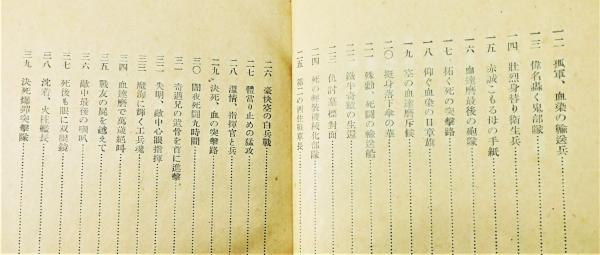 一二 孤軍、血染の輸送兵
一三 偉名轟く鬼部隊
一四 壯烈身替り衞生兵
一五 赤誠こもる母の手紙
一六 血達磨最後の砲隊
一七 拓く死の突擊路
一八 仰ぐ血染の日章旗
一九 空の血達磨斥候
二〇 挺身落下傘の華
二一 殊勳、死鬪の輸送船
二二 鐵牛奇蹟の生還
二三 仇討墓標對面
二四 死の輕裝機械化部隊
二五 第二の西住戰車長
二六 豪快壑の白兵戰
二七 體當り止めの猛攻
二八 溫情、指揮官と兵
二九 決死、血の突擊路
三〇 闇夜死鬪九時間
三一 奇遇兄の遺骨を首に進擊
三二 失明、敵中心眼指揮
三三 魔海に輝く工兵魂
三四 血達磨で萬歲絕叫
三五 戰友の屍を越えて
三六 敵中最後の喇叭
三七 死後も眼に双眼鏡
三八 沈着、火柱艦長
三九 決死爆彈突擊隊